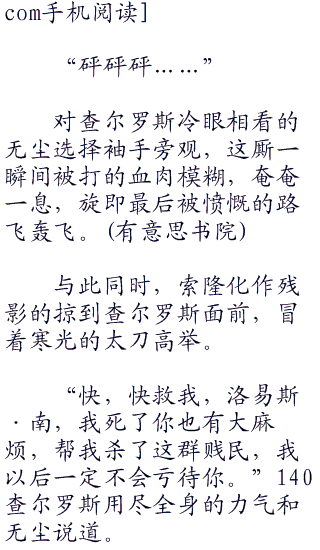 com手机阅读]
“砰砰砰……”
对查尔罗斯冷眼相看的
无尘选择袖手旁观，这厮一
瞬间被打的血肉模糊，奄奄
一息，旋即最后被愤慨的路
飞轰飞。(有意思书院)
与此同时，索隆化作残
影的掠到查尔罗斯面前，冒
着寒光的太刀高举。
“快，快救我，洛易斯
·南，我死了你也有大麻
烦，帮我杀了这群贱民，我
以后一定不会亏待你。”140
查尔罗斯用尽全身的力气和
无尘说道。